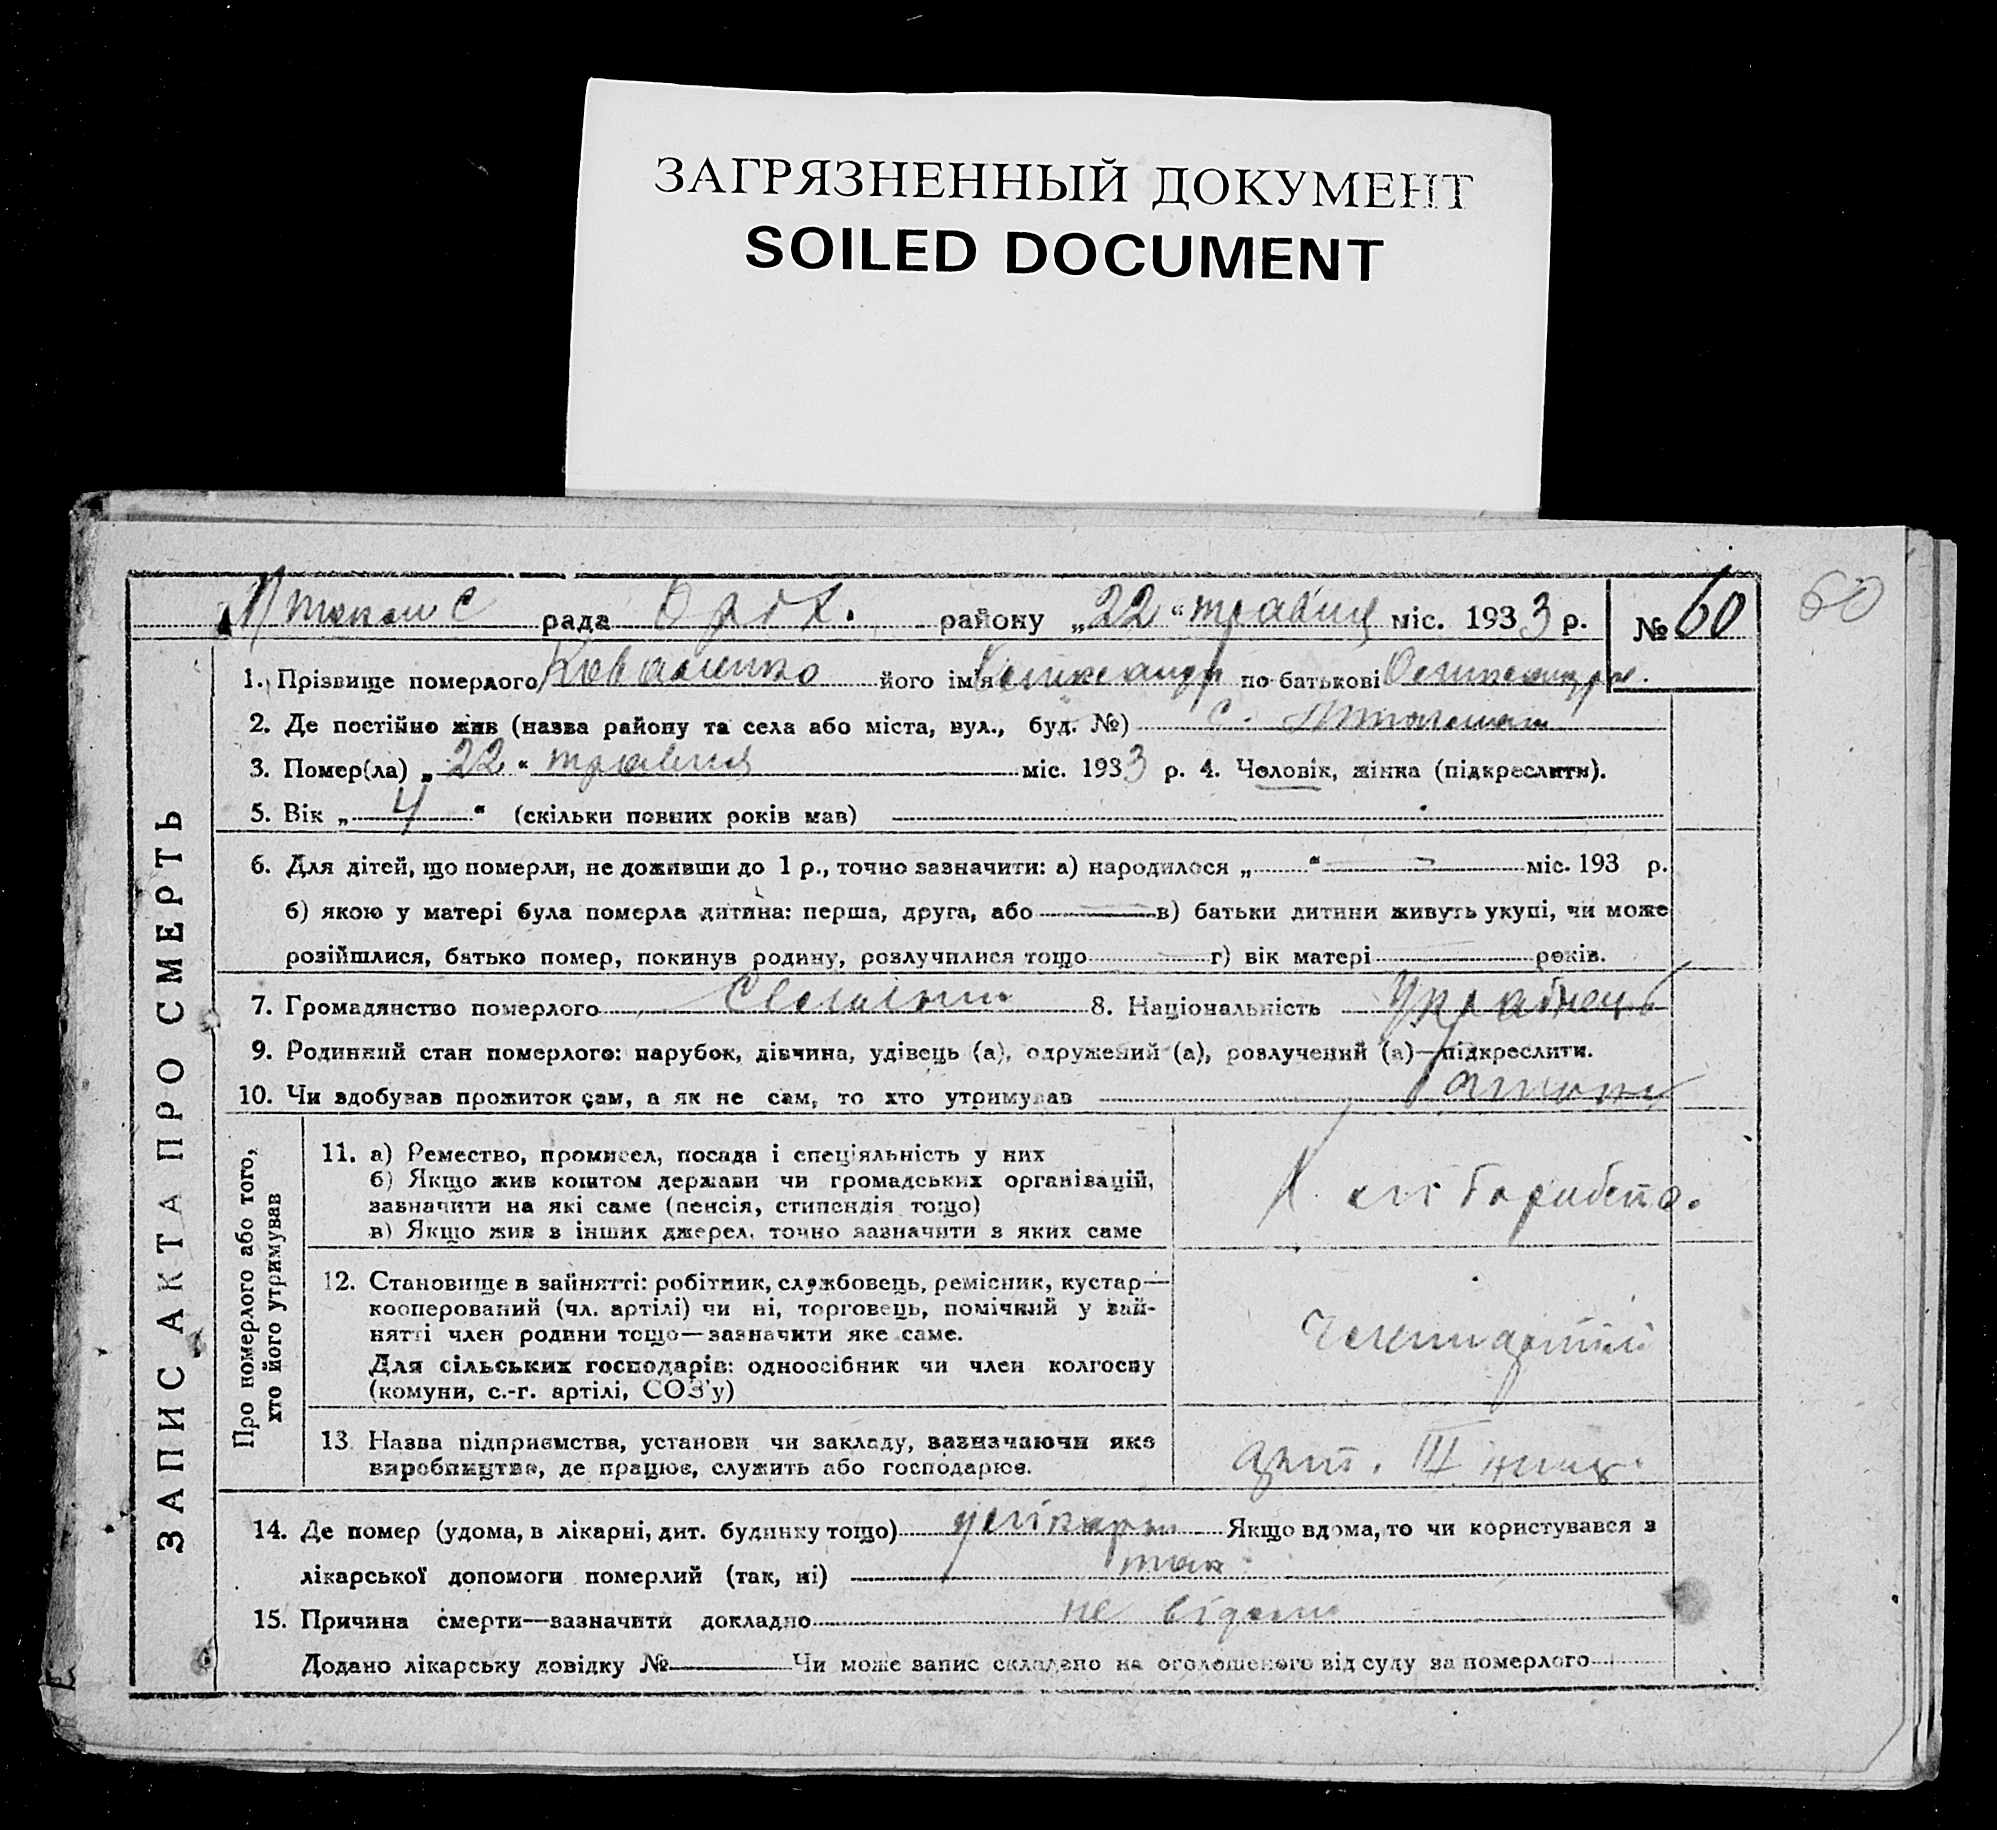 ЗАГРЯЗНЕННЫЙ ДОКУМЕНТ
SOILED DOCUMENT
рада Оріх. району „22“ травня міс. 1933 р. № 60
60
1. Прізвище померлого Коваленко його ім'я по батькові
2. Де постійно жив (назва району та села або міста, вул., буд. №) с.
3. Помер(ла) „22“ травня міс. 1933 р. 4. Чоловік, жінка (підкреслити).
5. Вік „4“ (скільки повних років мав)
6. Для дітей, що померли, не доживши до 1 р., точно зазначити: а) народилося „ “ міс. 193 р.
б) якою у матері була померла дитина: перша, друга, або в) батьки дитини живуть укупі, чи може
розійшлися, батько помер, покинув родину, розлучилися тощо г) вік матері років.
7. Громадянство померлого 8. Національність Українець
9. Родинний стан померлого: парубок, дівчина, удівець (а), одружений (а), розлучений (а)—підкреслити.
10. Чи здобував прожиток сам, а як не сам, то хто утримував
ЗАПИС АКТА ПРО СМЕРТЬ
Про померлого або того,
хто його утримував
11. а) Ремество, промисел, посада і спеціяльність у них
б) Якщо жив коштом держави чи громадських організацій,
зазначити на які саме (пенсія, стипендія тощо)
в) Якщо жив з інших джерел, точно зазначити з яких саме
12. Становище в зайнятті: робітник, службовець, ремісник, кустар—
кооперований (чл. артілі) чи ні, торговець, помічний у зай-
нятті член родини тощо—зазначити яке саме.
Для сільських господарів: одноосібник чи член колгоспу
(комуни, с.-г. артілі, СОЗ'у)
13. Назва підприємства, установи чи закладу, зазначаючи яке
виробництво, де працює, служить або господарює.
14. Де помер (удома, в лікарні, дит. будинку тощо) Якщо вдома, то чи користувався з
лікарської допомоги померлий (так, ні) так
15. Причина смерти—зазначити докладно не відомо
Додано лікарську довідку № Чи може запис складено на оголошеного від суду за померлого